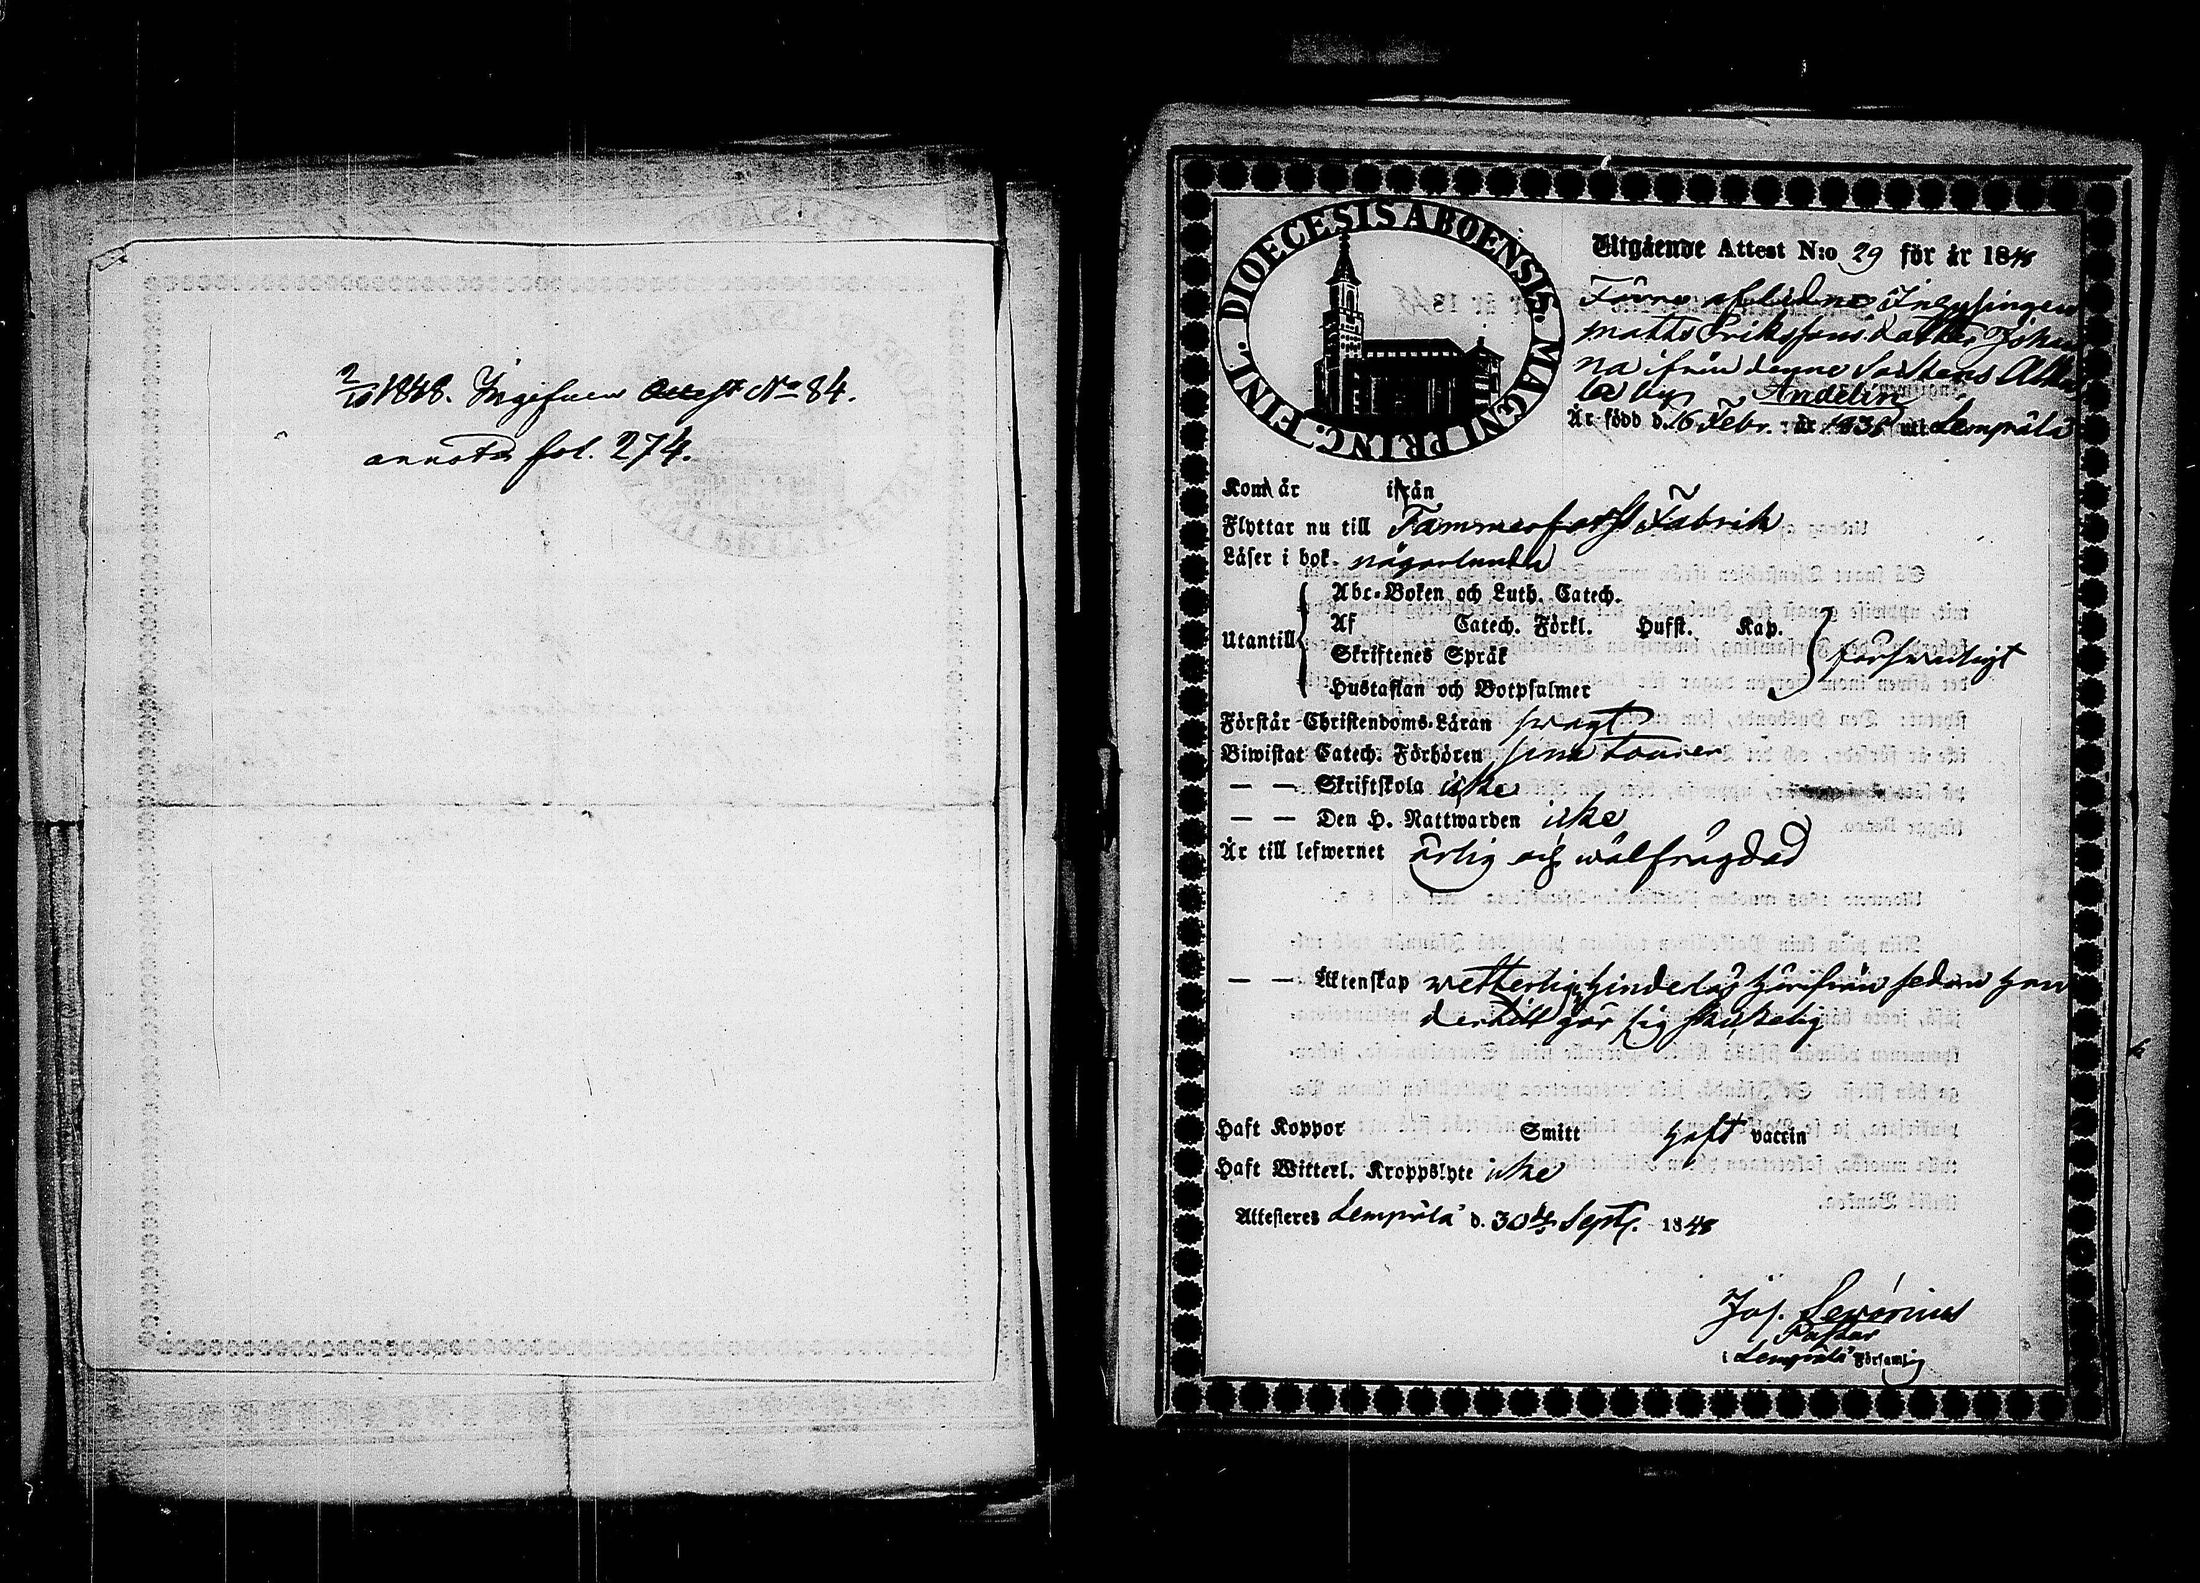 2/10 1848. Ingifven Attest No 84.
annoterad fol. 274.
DIOECESIS ABOENSIS. MAGNI PRINC. FINL.
Utgående Attest N:o 29 för år 1848
Förra aflidne Inhysingen
Matts Erikssons dotter Johan
na ifrån denne Sockens
by Andelin
Är född d. 16 Febr. år 183 uti Lempälä
Kom år ifrån
Flyttar nu till Tammerfors Fabrik
Läser i bok. någorlunda
Utantill
Abc-Boken och Luth. Catech.
Af Catech. Förkl. Hufst. Kap.
Skriftenes Språk
Hustaflan och Botpsalmer
försvarligt
Förstår Christendoms-Läran svagt
Biwistat Catech. Förhören sina tourer
— — Skriftskola icke
— — Den H. Nattwarden icke
Är till lefwernet ärlig och wälfrägdad
— — Äktenskap wetterlig hinderlös härifrån sedan hon
dertill gör sig skickelig
Haft Koppor Smitt haft vaccin
Haft Witterl. Kroppslyte icke
Attesteres Lempälä d. 30de Sept. 1848
Jos. Severinus
Pastor
i Lempälä Församlig